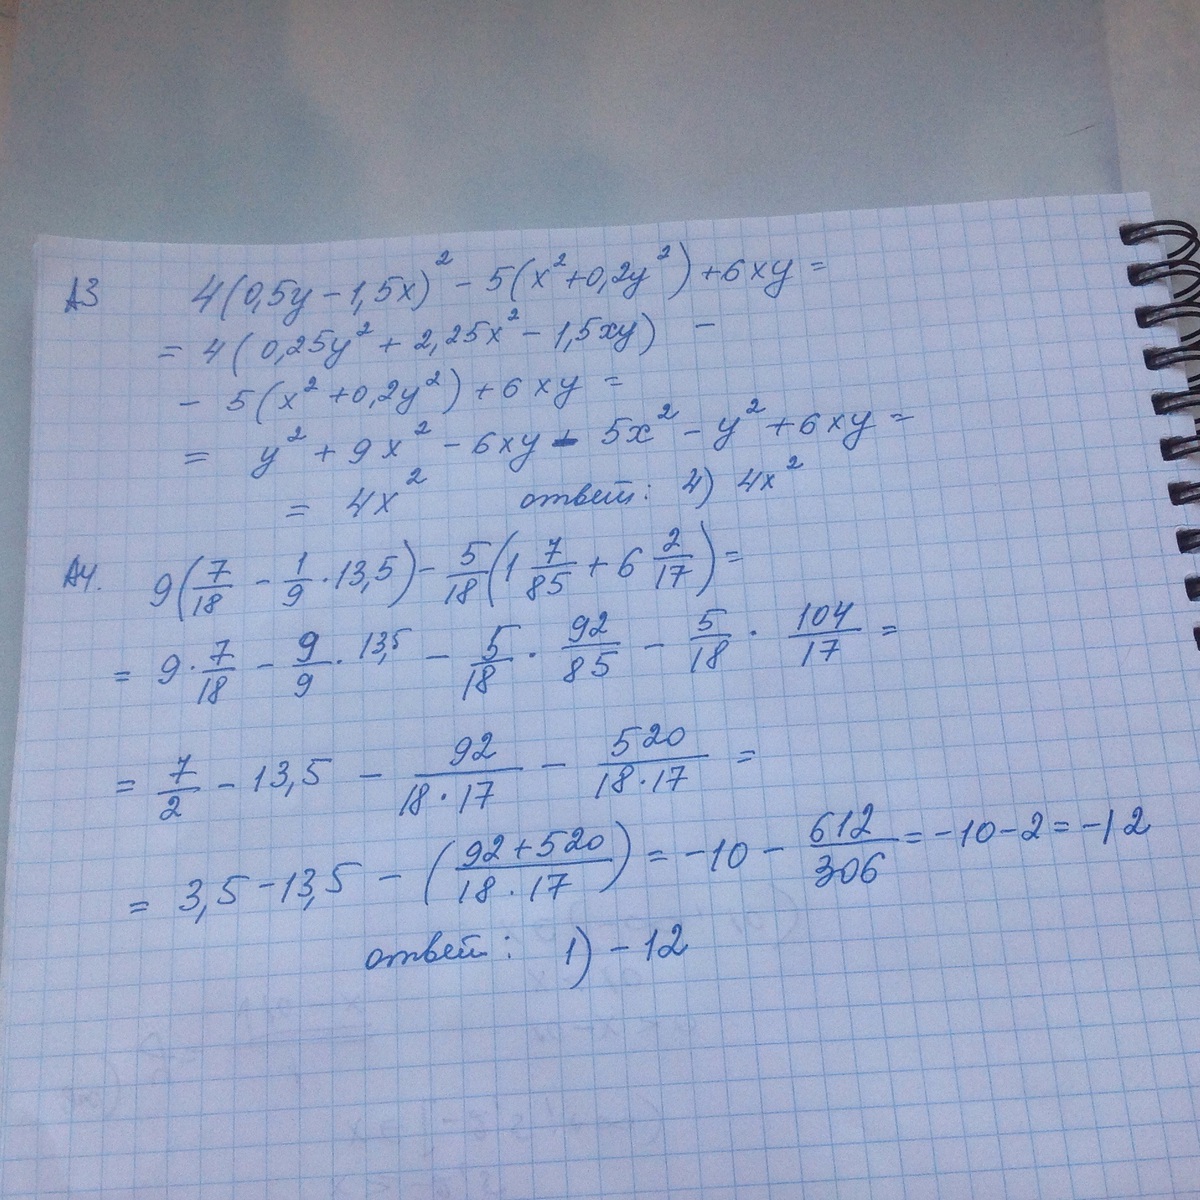 А3 4(0,5y - 1,5x)² - 5(x² + 0,2y²) + 6xy =
= 4(0,25y² + 2,25x² - 1,5xy) -
- 5(x² + 0,2y²) + 6xy =
= y² + 9x² - 6xy - 5x² - y² + 6xy =
= 4x² ответ: 4) 4x²
А4. 9(7/18 - 1/9 · 13,5) - 5/18(1 7/85 + 6 2/17) =
= 9 · 7/18 - 9/9 · 13,5 - 5/18 · 92/85 - 5/18 · 104/17 =
= 7/2 - 13,5 - 92/(18·17) - 520/(18·17) =
= 3,5 - 13,5 - ((92+520)/(18·17)) = -10 - 612/306 = -10 - 2 = -12
ответ: 1) -12